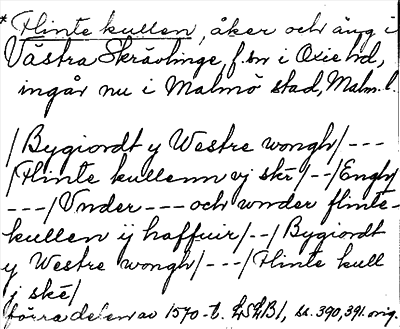 * Flinte kullen, åker och äng i
Västra Skrävlinge, f. sn i Oxie hd,
ingår nu i Malmö stad, Malm. l.
/Bygiordt y Westre wongh/---
/Flinte kullenn vj ske/--/Enghz
---/Vnder --- och wnder flinte-
kullen ij haffuir/--/Bygiordt
y Westre wongh/---/Flinte kull
j ske/
förra delen av 1570-t. LSLB1, ss. 390, 391 orig.